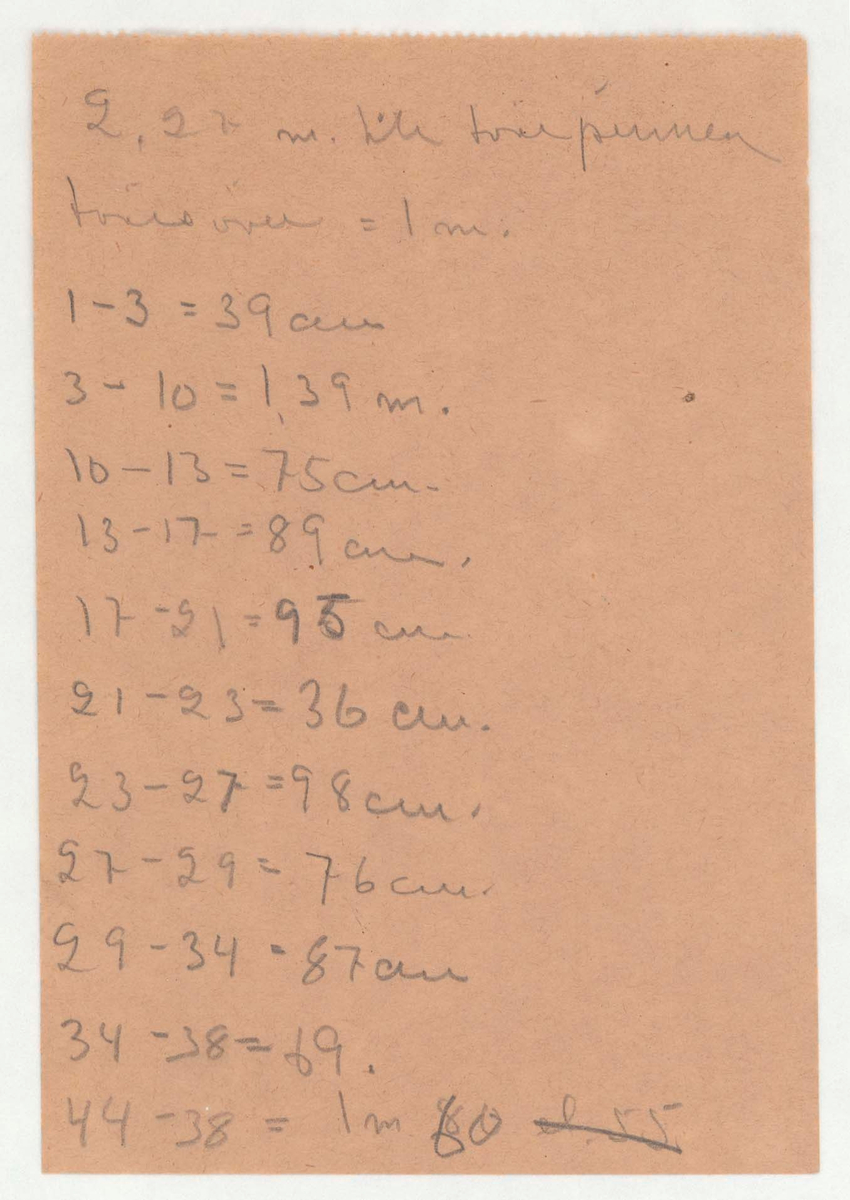 2,27 m. till
tvärs över = 1 m.
1-3 = 39 cm
3-10 = 1,39 m.
10-13 = 75 cm.
13-17 = 89 cm.
17-21 = 95 cm
21-23 = 36 cm.
23-27 = 98 cm.
27-29 = 76 cm.
29-34 = 87 cm
34-38 = 69.
44-38 = 1 m 80 el. 55